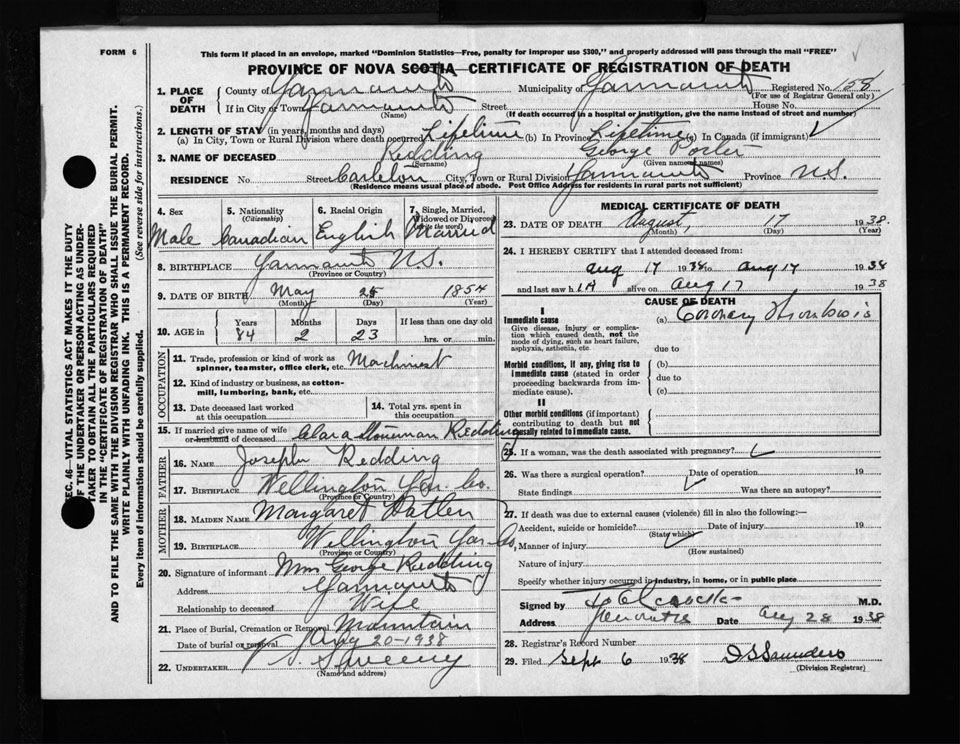 FORM 6
This form if placed in an envelope, marked "Dominion Statistics—Free, penalty for improper use $300," and properly addressed will pass through the mail "FREE"
PROVINCE OF NOVA SCOTIA—CERTIFICATE OF REGISTRATION OF DEATH
1. PLACE OF DEATH
County of Yarmouth Municipality of Yarmouth Registered No. 158
(For use of Registrar General only)
If in City or Town Yarmouth Street House No.
(Name) (If death occurred in a hospital or institution, give the name instead of street and number)
2. LENGTH OF STAY (in years, months and days)
(a) In City, Town or Rural Division where death occurred Lifetime (b) In Province Lifetime (c) In Canada (if immigrant)
3. NAME OF DECEASED Redding George Porter
(Surname) (Given name or names)
RESIDENCE No. Street Carleton City, Town or Rural Division Yarmouth Province N.S.
(Residence means usual place of abode. Post Office Address for residents in rural parts not sufficient)
4. Sex
Male
5. Nationality
(Citizenship)
Canadian
6. Racial Origin
English
7. Single, Married, Widowed or Divorced
(Write the word)
Married
8. BIRTHPLACE Yarmouth N.S.
(Province or Country)
9. DATE OF BIRTH May 25 1854
(Month) (Day) (Year)
10. AGE in
Years Months Days If less than one day old
84 2 23 hrs. or min.
OCCUPATION
11. Trade, profession or kind of work as
spinner, teamster, office clerk, etc. Machinist
12. Kind of industry or business, as cotton-
mill, lumbering, bank, etc.
13. Date deceased last worked
at this occupation
14. Total yrs. spent in
this occupation
15. If married give name of wife
or husband of deceased Clara Redding
FATHER
16. NAME Joseph Redding
17. BIRTHPLACE Wellington Yar. Co.
(Province or Country)
MOTHER
18. MAIDEN NAME Margaret
19. BIRTHPLACE Wellington Yar Co,
(Province or Country)
20. Signature of informant Mrs George Redding
Address Yarmouth
Relationship to deceased Wife
21. Place of Burial, Cremation or Removal Mountain
Date of burial or removal Aug 20-1938
22. UNDERTAKER Sweeny
(Name and address)
MEDICAL CERTIFICATE OF DEATH
23. DATE OF DEATH August, 17 1938.
(Month) (Day) (Year)
24. I HEREBY CERTIFY that I attended deceased from:
Aug 17 1938 to Aug 17 1938
and last saw h im alive on Aug 17 1938
CAUSE OF DEATH
I
Immediate cause (a) Coronary Thrombosis
Give disease, injury or complica-
tion which caused death, not the
mode of dying, such as heart failure,
asphyxia, asthenia, etc.
due to
Morbid conditions, if any, giving rise to (b)
immediate cause (stated in order
proceeding backwards from im-
mediate cause).
due to
(c)
II
Other morbid conditions (if important)
contributing to death but not
causally related to immediate cause.
25. If a woman, was the death associated with pregnancy?
26. Was there a surgical operation? Date of operation 19
State findings Was there an autopsy?
27. If death was due to external causes (violence) fill in also the following:—
Accident, suicide or homicide? Date of injury 19
(State which)
Manner of injury
(How sustained)
Nature of injury
Specify whether injury occurred in industry, in home, or in public place
Signed by M.D.
Address Date Aug 28 1938
28. Registrar's Record Number
29. Filed Sept 6 1938 D S Saunders
(Division Registrar)
SEC. 46—VITAL STATISTICS ACT MAKES IT THE DUTY
OF THE UNDERTAKER OR PERSON ACTING AS UNDER-
TAKER TO OBTAIN ALL THE PARTICULARS REQUIRED
IN THE "CERTIFICATE OF REGISTRATION OF DEATH"
AND TO FILE THE SAME WITH THE DIVISION REGISTRAR WHO SHALL ISSUE THE BURIAL PERMIT.
WRITE PLAINLY WITH UNFADING INK. THIS IS A PERMANENT RECORD.
Every item of information should be carefully supplied. (See reverse side for instructions.)